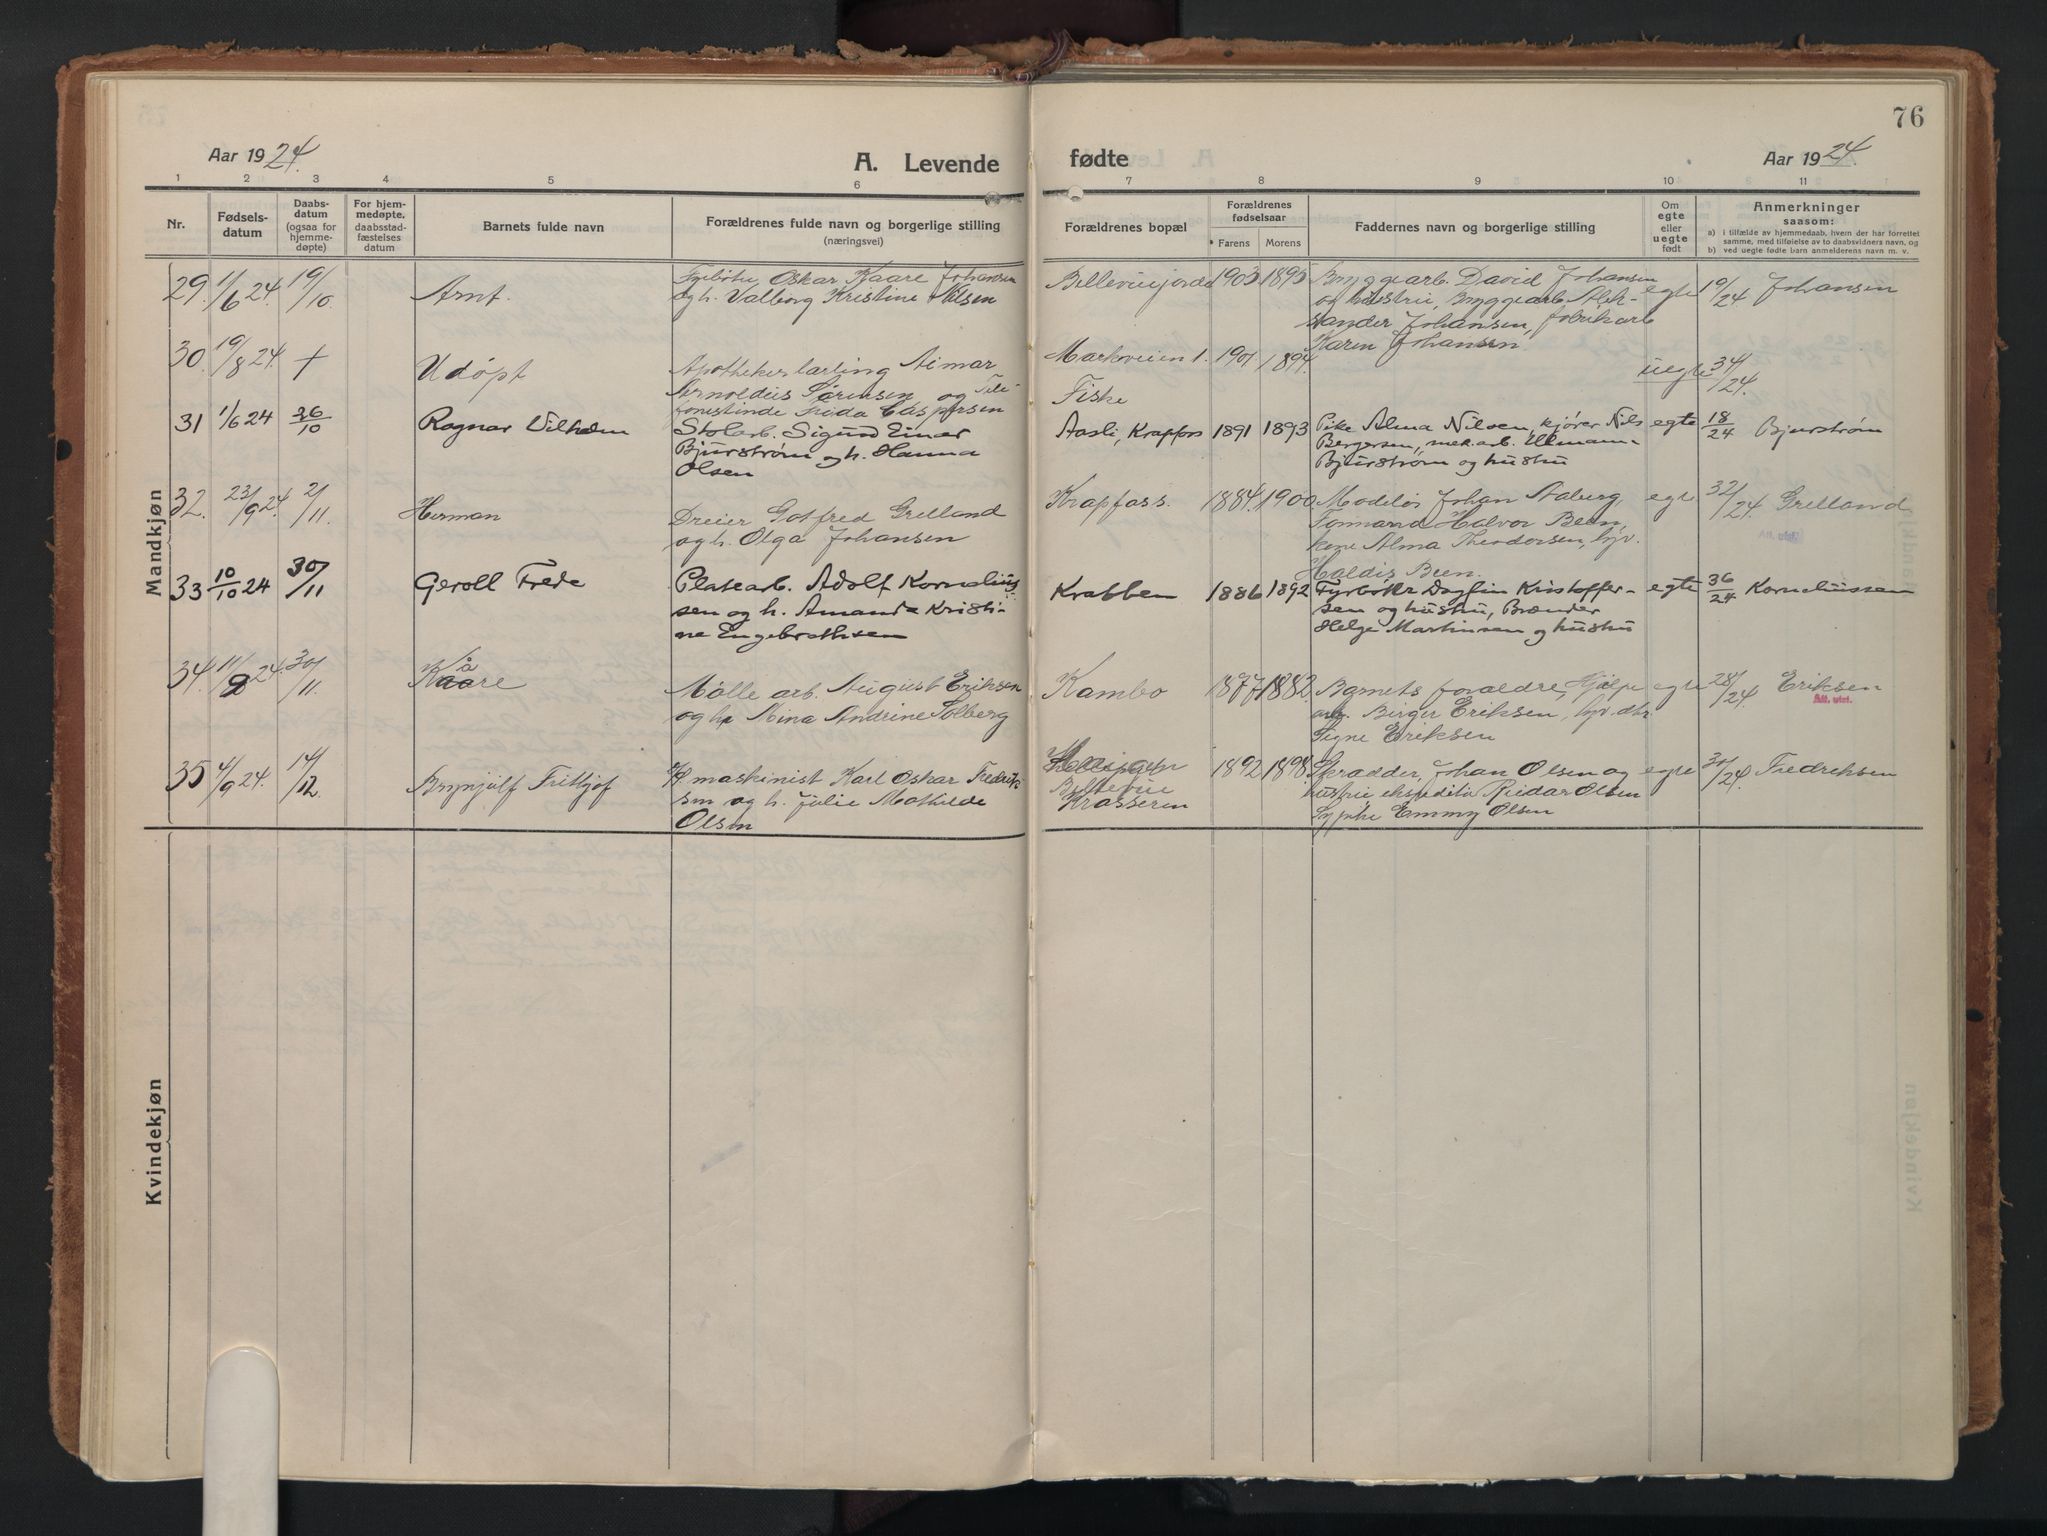 76
Aar 1924.
A. Levende
fødte
Aar 1924.
1 2 3 4 5 6 7 8 9 10 11
Nr.
Fødsels-
datum
Daabs-
datum
(ogsaa for
hjemme-
døpte)
For hjem-
medøpte,
daabsstad-
fæstelses
datum
Barnets fulde navn
Forældrenes fulde navn og borgerlige stilling
(næringsvei)
Forældrenes bopæl
Forældrenes
fødselsaar
Farens Morens
Faddernes navn og borgerlige stilling
Om
egte
eller
uegte
født
Anmerkninger
saasom:
a) i tilfælde av hjemmedaab, hvem der har forrettet
samme, med tilføielse av to daabsvidners navn, og
b) ved uegte fødte barn anmelderens navn m. v.
Mandkjøn
29. 1/6 24. 19/10. Arnt.
Fyrbøter Oskar Kaare Johansen
og h. Valborg Kristine Nilsen
1903 1895
Bryggearb. David Johansen
og hustru, Bryggearb. Alek-
sander Johansen, fabrikarb
Karen Johansen
egte 19/24 Johansen
30. 19/8 24. + Udøpt
Apothekerlærling Aimar
Arnoldus Sørensen og Tele-
fonistinde Frida Caspersen
Markveien 1.
Fiske
1901 1894.
uegte 34/24.
31 1/6 24 26/10 Ragnar Vilhelm
Stolarb. Sigurd Einar
Bjurstrøm og h. Hanna
Olsen
Aasli, Krapfos 1891 1893
Pike Alma Nilsen, kjører Nils
Bergersen, mek. arb. Ullmann
Bjurstrøm og hustru
egte 18/24 Bjurstrøm
32. 23/9 24. 2/11. Herman
Dreier Gotfred Grelland
og h. Olga Johansen
Krapfoss. 1884. 1900
Johan Staberg,
Halvor Been,
kone Alma Theodorsen, hjv.
Haldis Been.
egte 32/24 Grelland
Att. utst.
33 10/10 24 30/11 Geroll Frede
Platearb. Adolf Kornelius-
sen og h. Amanda Kristi-
ne Engebrethsen
Krabben 1886 1892
Fyrbøter Dagfin Kristoffer-
sen og hustru, Brænder
Helge Martinsen og hustru
egte 36/24 Korneliussen
34. 11/9 24. 30/11. Kåre
Mølle arb. August Eriksen
og h. Mina Andrine Solberg
Kambo 1877 1882
Barnets forældre, Hjælpe
arb. Birger Eriksen, hjv. dtr.
Signe Eriksen
egte 28/24. Eriksen
Att. utst.
35 4/9 24. 14/12. Brynjulf Frithjof
maskinist Karl Oskar Fredrik-
sen og h. Julie Mathilde
Olsen
Bellevue
Krasseren
1892 1898.
Skrædder, Johan Olsen og
hustru ekspeditør Reidar Olsen
Sypike Emmy Olsen
egte 30/24. Fredriksen
Kvindekjøn